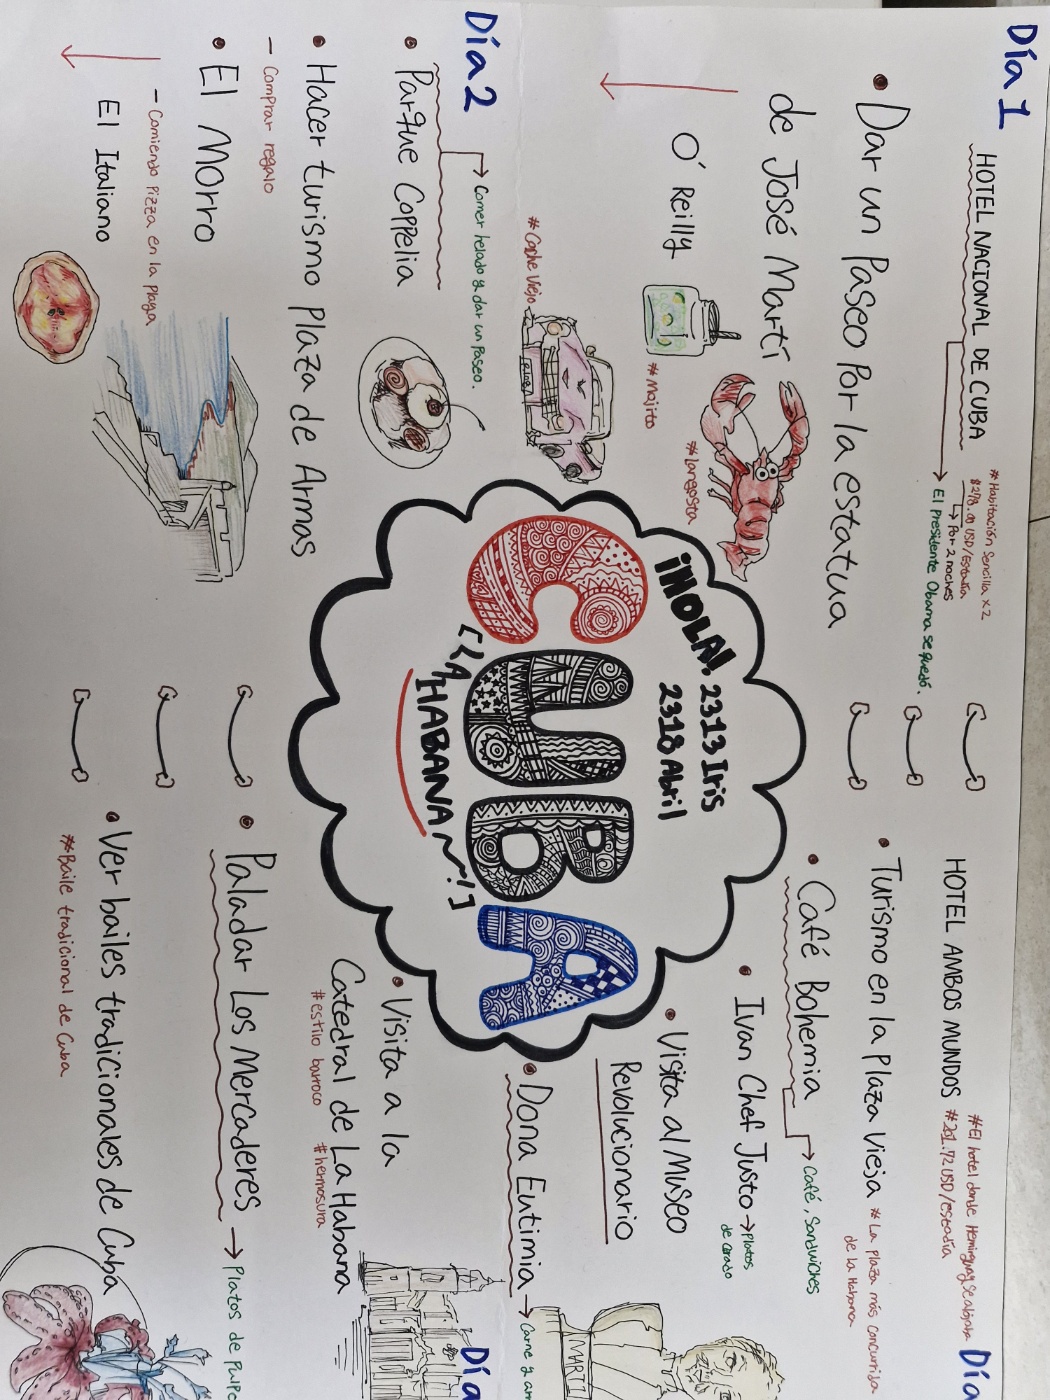 Día 1
HOTEL NACIONAL DE CUBA
# Habitación Sencilla x2
$278.00 USD/estadía
↳ Por 2 noches
El Presidente Obama se quedó.
• Dar un Paseo Por la estatua
de José Martí
# Langosta
O' Reilly
# Mojito
# Coche Viejo
Día 2
→ Comer helado y dar un Paseo.
• Parque Coppelia
• Hacer turismo Plaza de Armas
- Comprar regalo
• El Morro
- Comiendo Pizza en la Playa
El Italiano
¡HOLA!
2313 Iris
2318 Abril
CUBA
[LA HABANA~!]
HOTEL AMBOS MUNDOS
#El hotel donde Hemingway se
#201.72 USD/estadía
Día
• Turismo en la Plaza Vieja
# La Plaza más concurrida
de la Habana
• Café Bohemia
→ Café, Sandwiches
• Ivan Chef Justo → Platos
de
• Visita al Museo
Revolucionario
• Dona Eutimia → Carne y
MARTI
• Visita a la
Catedral de La Habana
#estilo barroco #hermosura
Día
• Paladar Los Mercaderes → Platos de
• Ver bailes tradicionales de Cuba
# Baile tradicional de Cuba